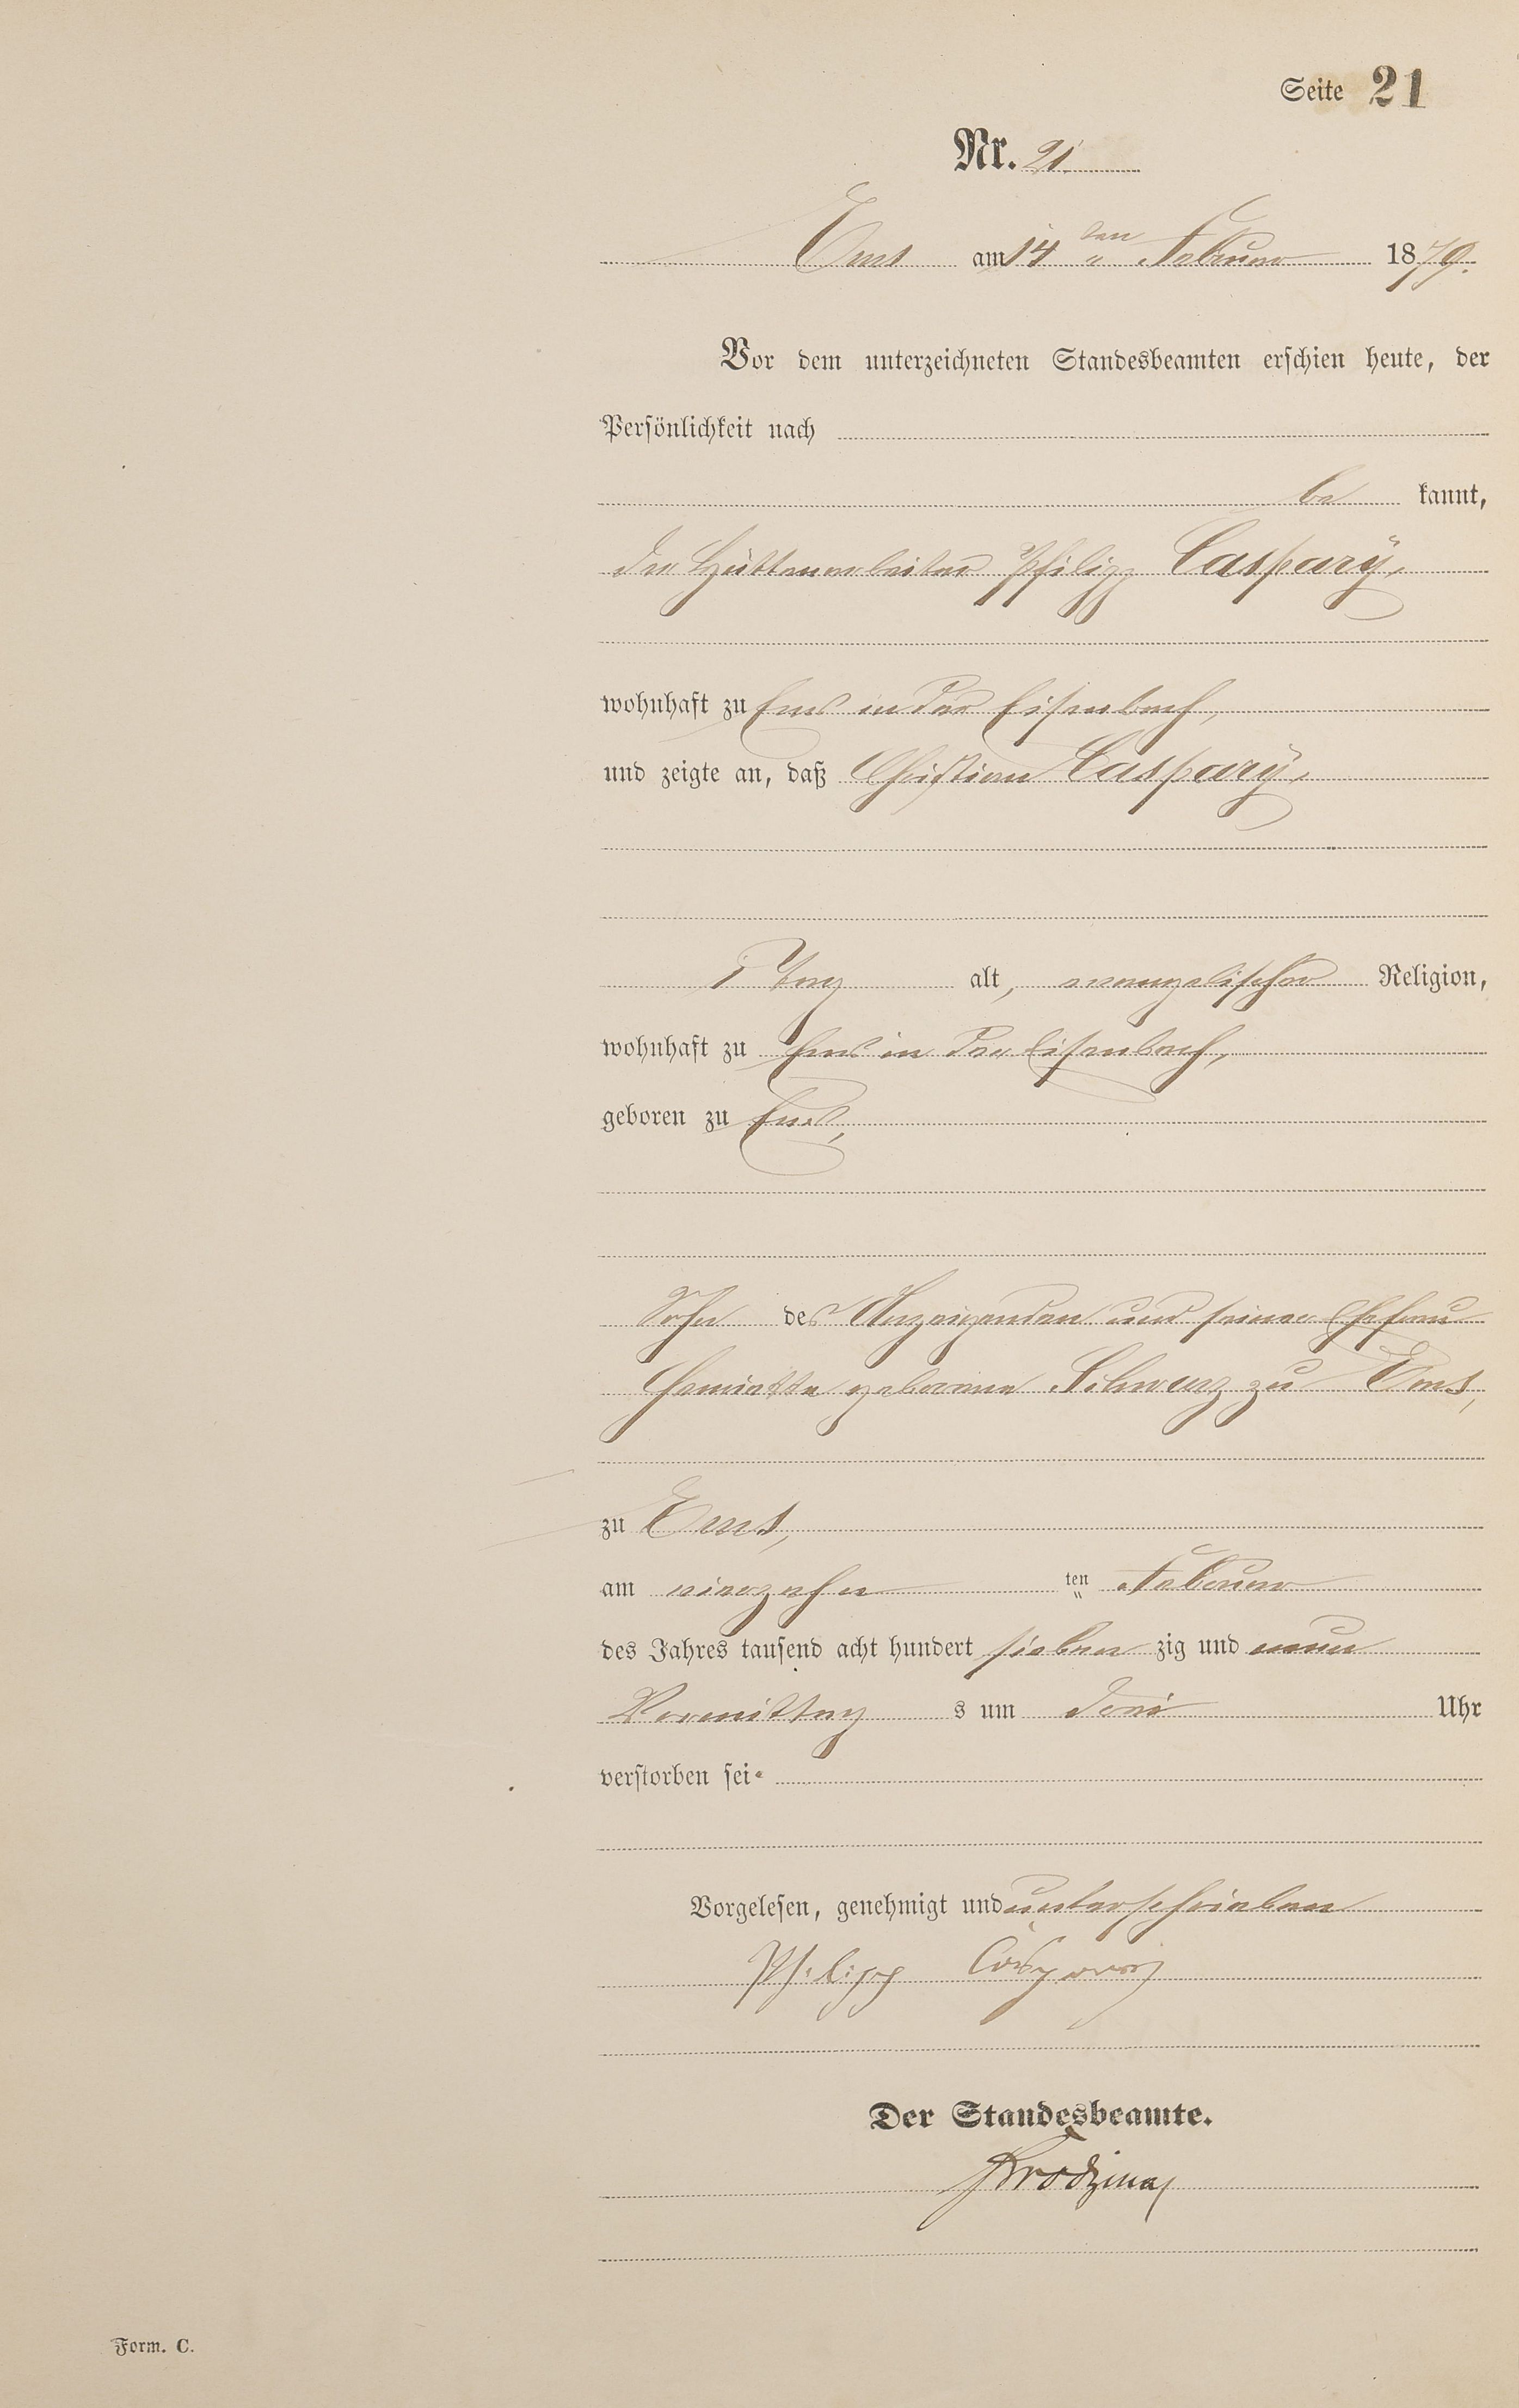 Seite 21
Nr. 21.
Ems am 14 ten Februar 1879.
Vor dem unterzeichneten Standesbeamten erschien heute, der
Persönlichkeit nach
be kannt,
der Hüttenarbeiter Philipp Caspary,
wohnhaft zu Ems in der Eisenbach,
und zeigte an, daß Christian Caspary,
1 Tag alt, evangelischer Religion,
wohnhaft zu Ems in der Eisenbach,
geboren zu Ems,
Sohn des Anzeigenden und seiner Ehefrau
Henriette geborene Schwarz zu Ems,
zu Ems,
am vierzehn ten Februar
des Jahres tausend acht hundert sieben zig und neun
Vormittag s um drei Uhr
verstorben sei.
Vorgelesen, genehmigt und unterschrieben
Philipp Caspary
Der Standesbeamte.
Form. C.